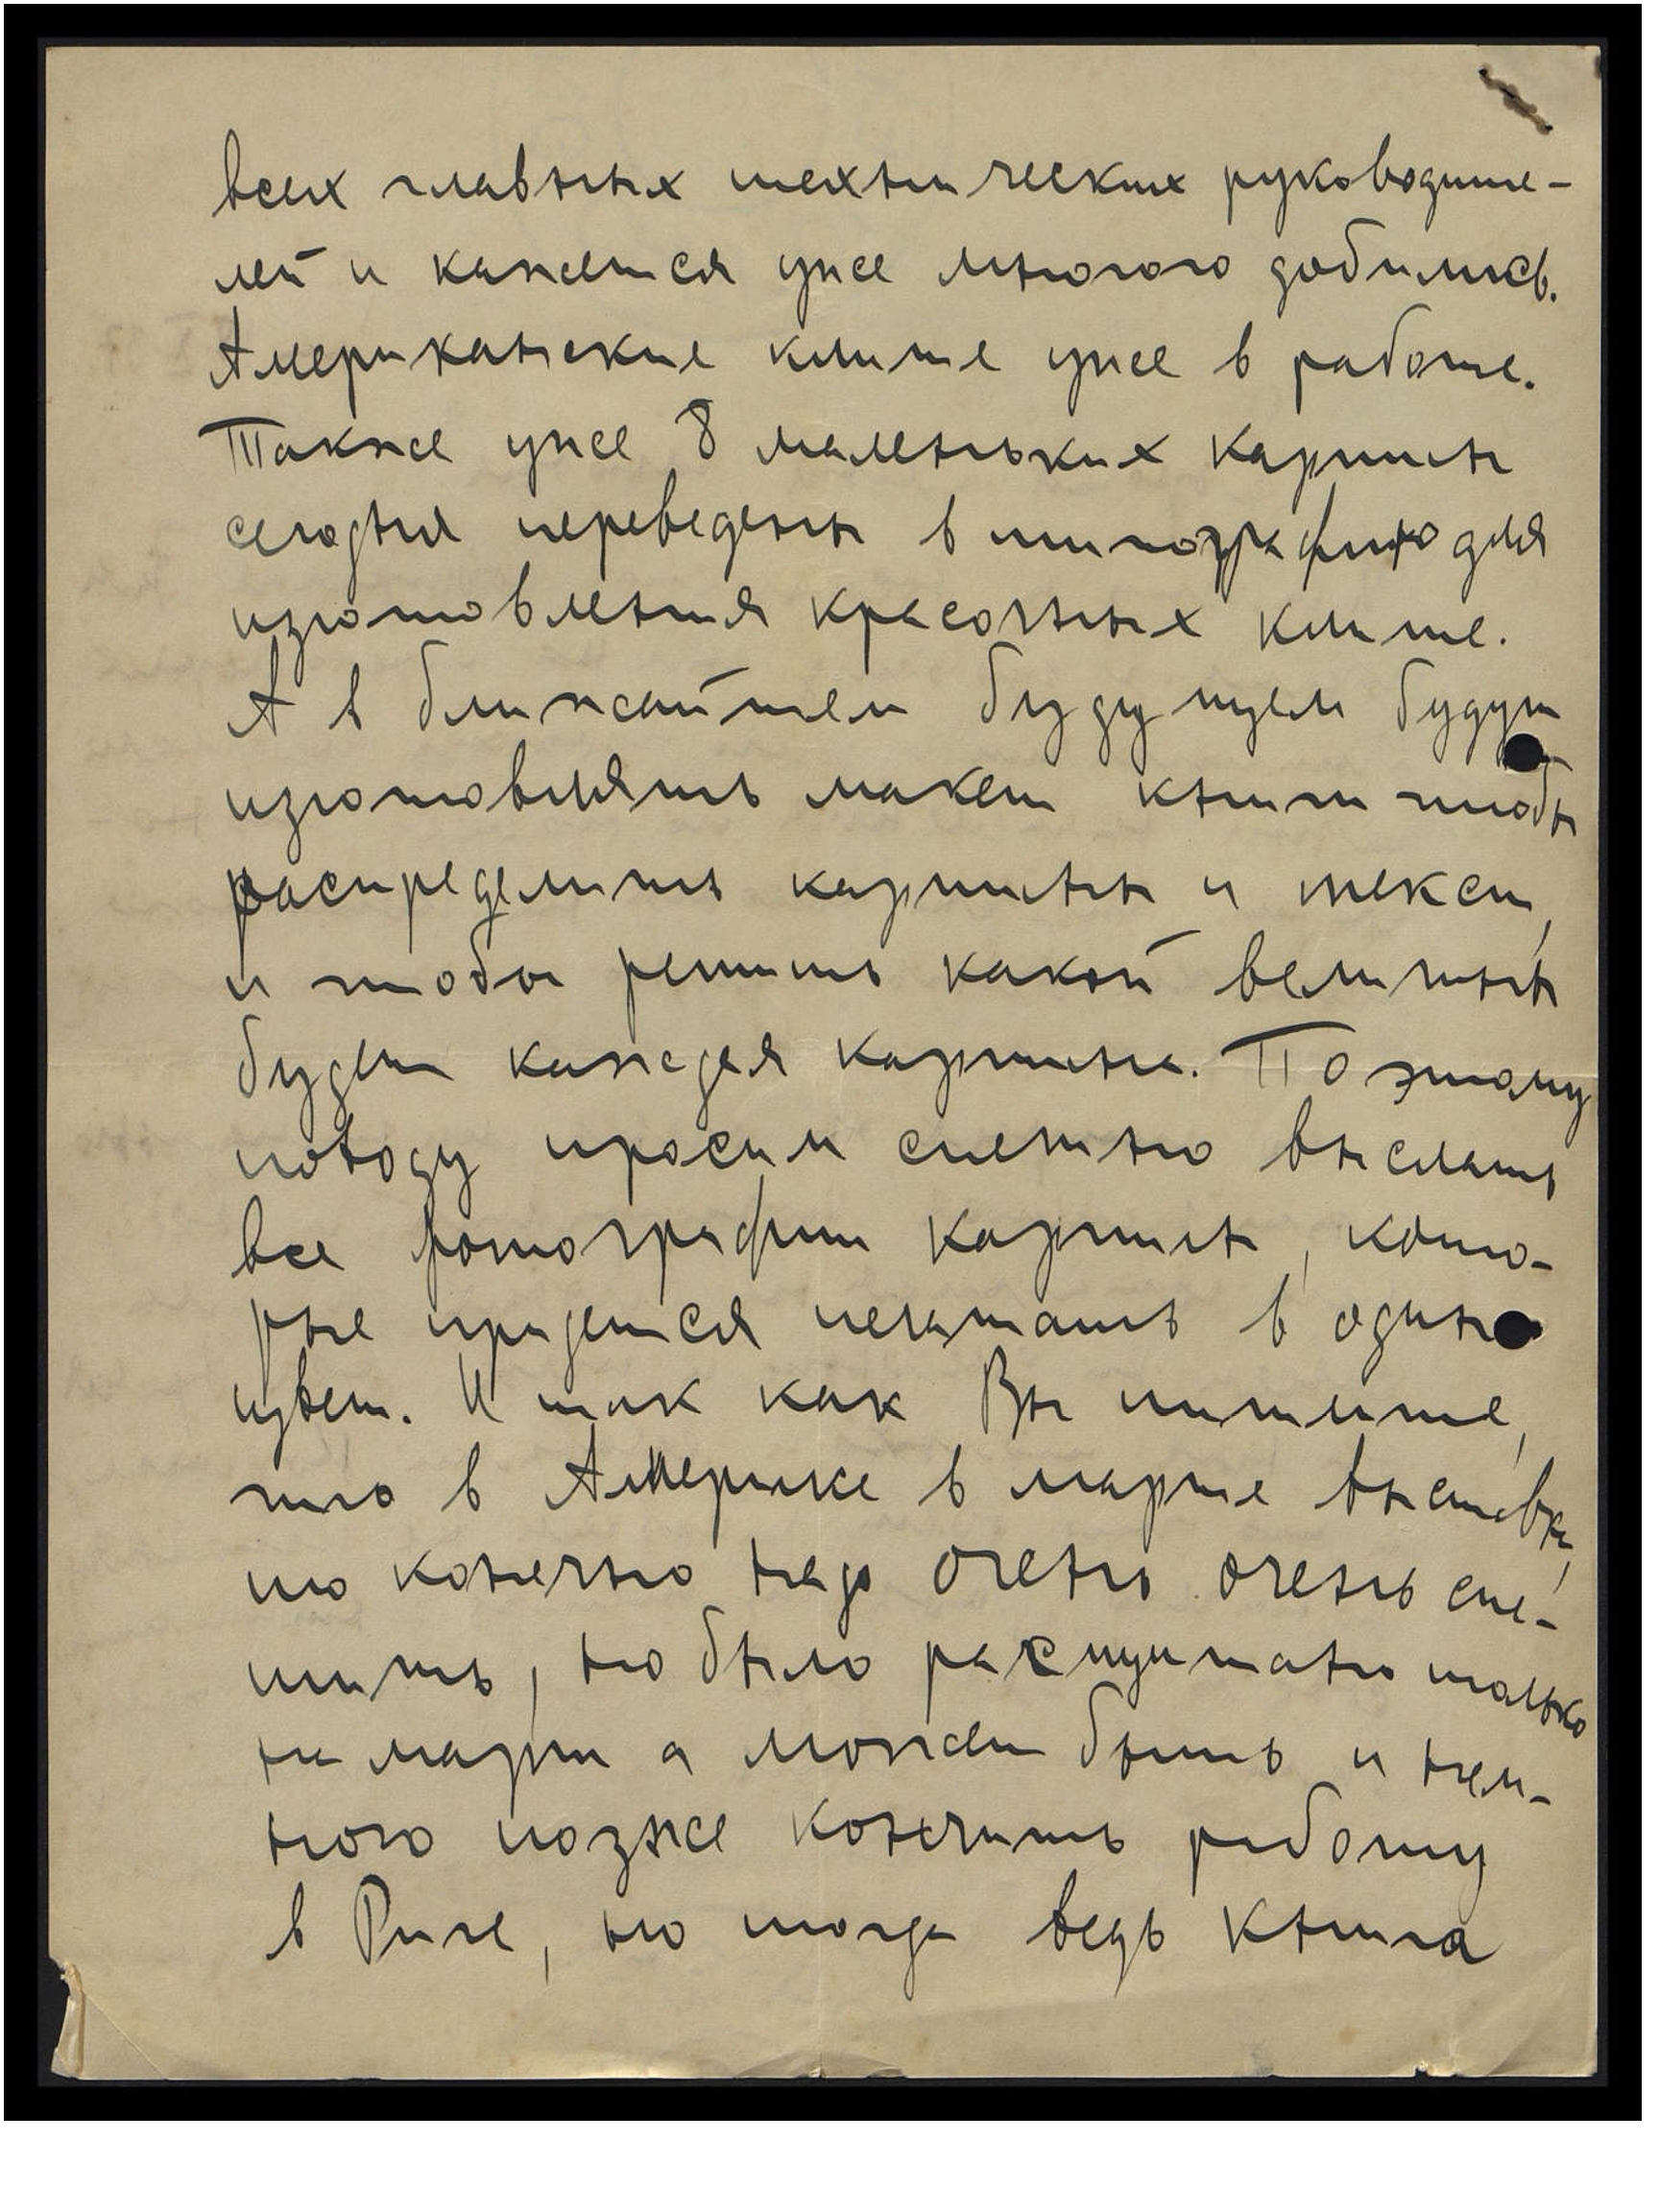 всех главных технических руководите-
лей и кажется уже многого добились.
Американские клише уже в работе.
Также уже 8 маленьких картин
сегодня переведены в типографию для
изготовления красочных клише.
А в ближайшем будущем будут
изготовлять макет книги чтобы
распределить картины и текст,
и чтобы решить какой величины
будет каждая картина. По этому
поводу просим спешно выслать
все фотографии картин, кото-
рые придется печатать в один
цвет. И так как Вы пишете,
что в Америке в марте выставка,
то конечно надо очень очень спе-
шить, но было расщитано только
на март а может быть и нем-
ного позже кончить работу
в Риге, но тогда ведь книга